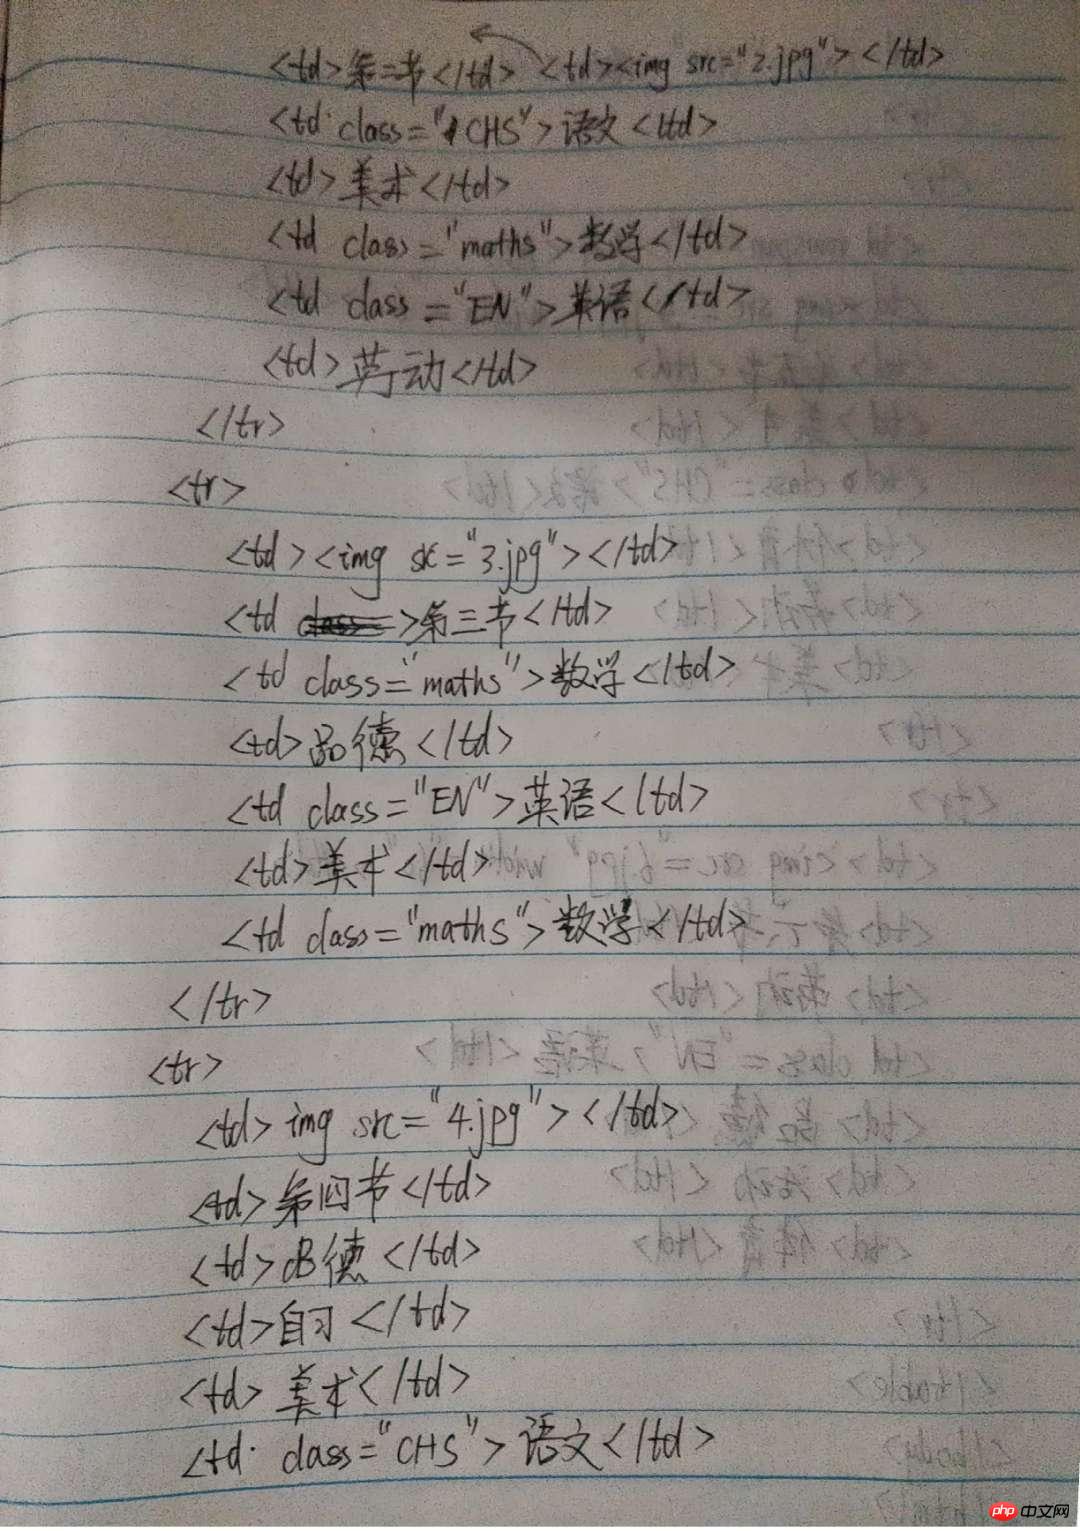 <td>第二节</td> <td><img src="2.jpg"></td>
<td class="CHS">语文</td>
<td>美术</td>
<td class="maths">数学</td>
<td class="EN">英语</td>
<td>劳动</td>
</tr>
<tr>
<td><img src="3.jpg"></td>
<td >第三节</td>
<td class="maths">数学</td>
<td>品德</td>
<td class="EN">英语</td>
<td>美术</td>
<td class="maths">数学</td>
</tr>
<tr>
<td>img src="4.jpg"></td>
<td>第四节</td>
<td>品德</td>
<td>自习</td>
<td>美术</td>
<td class="CHS">语文</td>
php中文网